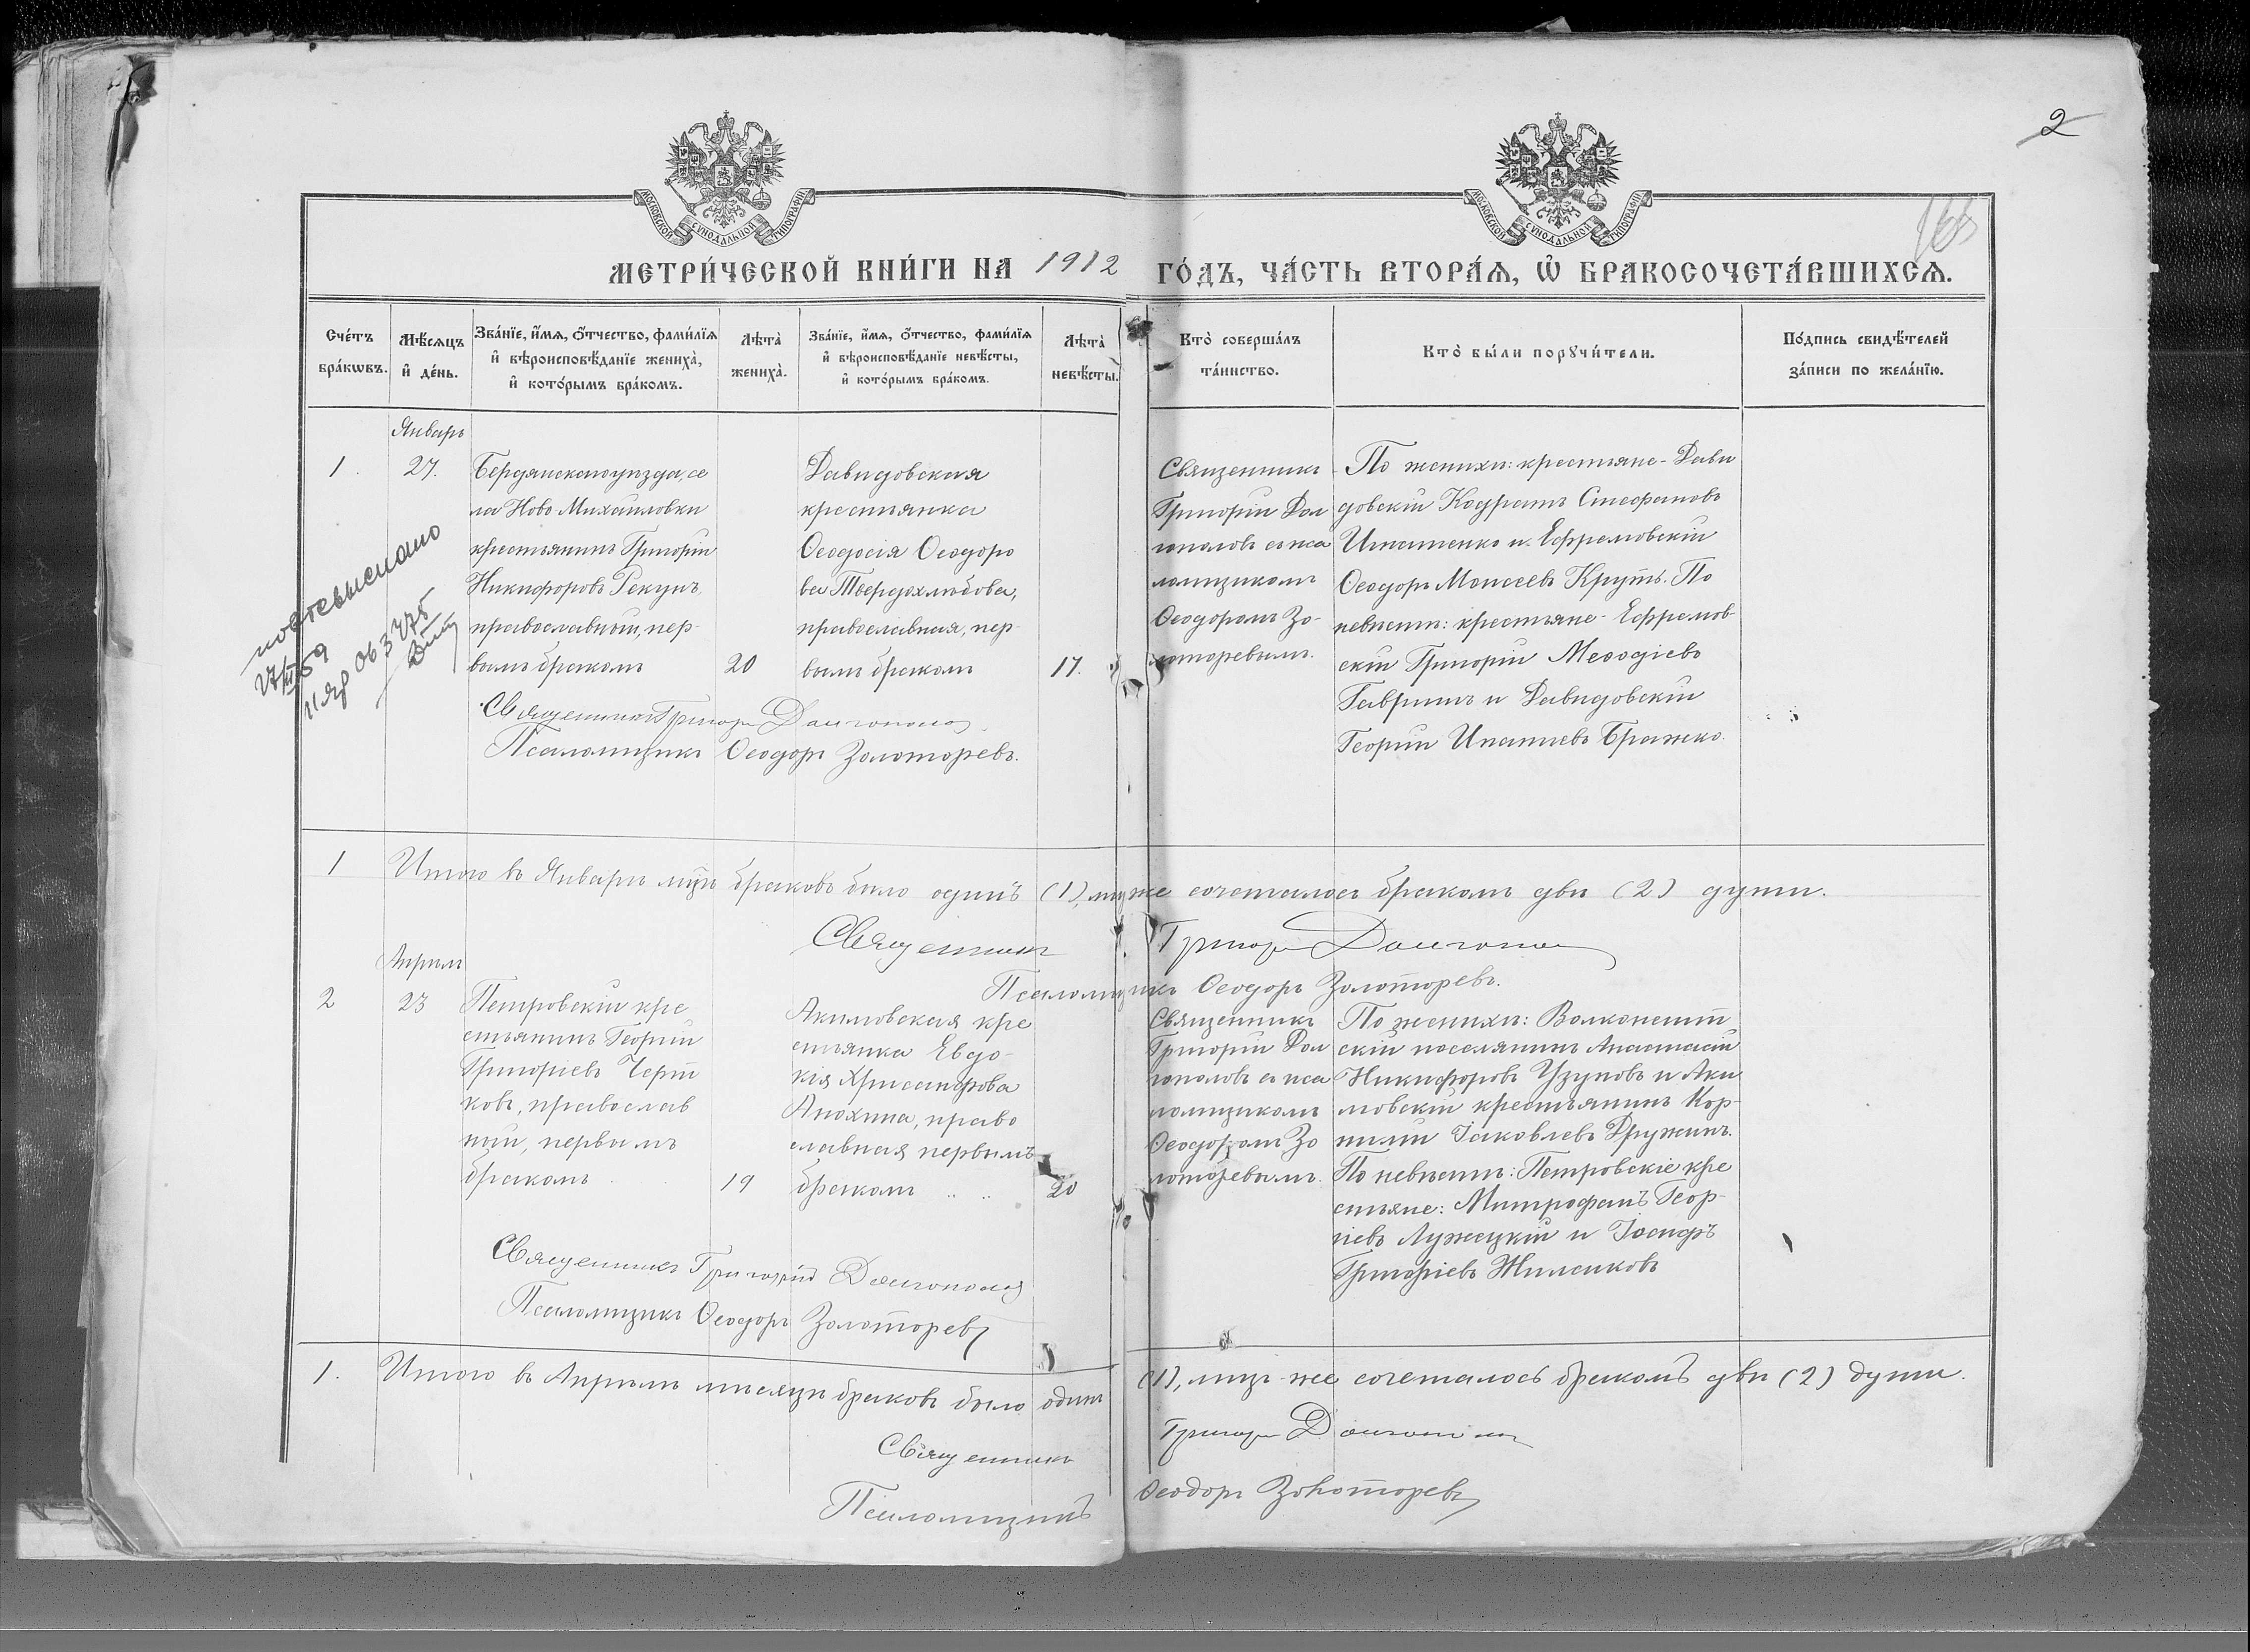 2
163
МОСКОВСКОЙ СУНОДАЛЬНОЙ ТИПОГРАФІИ
МОСКОВСКОЙ СУНОДАЛЬНОЙ ТИПОГРАФІИ
МЕТРИ́ЧЕСКОЙ КНИ́ГИ НА 1912 ГО́ДЪ, ЧА́СТЬ ВТОРА́Ѧ, Ѽ БРАКОСОЧЕТА́ВШИХСѦ.
Сче́тъ бра́кѡвъ.
Мѣ́сяцъ и҆ де́нь.
Зва́нїе, и҆́мѧ, ѻ҆́тчество, фами́лїѧ и҆ вѣроисповѣ́данїе жениха̀, и҆ кото́рымъ бра́комъ.
Лѣта̀ жениха̀.
Зва́нїе, и҆́мѧ, ѻ҆́тчество, фами́лїѧ и҆ вѣроисповѣ́данїе невѣ́сты, и҆ кото́рымъ бра́комъ.
Лѣта̀ невѣ́сты.
Кто̀ соверша́лъ та́инство.
Кто̀ бы́ли порꙋчи́тели.
По́дпись свидѣ́телей за́писи по жела́нїю.
Январь
1. 27.
Бердянскаго уѣзда, се
ла Ново-Михайловки
крестьянинъ Григорій
Никифоровъ Рекунъ,
православный, пер-
вымъ бракомъ
20
Давидовская
крестьянка
Ѳеодосія Ѳеодоро
ва Твердохлѣбова,
православная, пер-
вымъ бракомъ
17.
Священникъ
Григорій Дол
гополовъ съ пса
ломщикомъ
Ѳеодоромъ Зо-
лоторевымъ.
По женихѣ: крестьяне - Дави
довскій Кодратъ Стефановъ
Игнатенко и Ефремовскій
Ѳеодоръ Моисеевъ Круть. По
невѣстѣ: крестьяне - Ефремов
скій Григорій Меѳодіевъ
Гавришъ и Давидовскій
Георгій Игнатіевъ Бражко.
Священникъ Григорій Долгополов
Псаломщикъ Ѳеодоръ Золоторевъ.
повт. выслано
27/III 59
11 яр 063775
1 Итого въ Январѣ мцѣ браковъ было одинъ (1), лицъ же сочеталось бракомъ двѣ (2) души.
Священникъ Григорій Долгополов
Псаломщикъ Ѳеодоръ Золоторевъ.
Апрѣль
2 23
Петровскій кре
стьянинъ Георгій
Григоріевъ Черт
ковъ, православ
ный, первымъ
бракомъ
19
Акимовская кре
стьянка Евдо-
кія Хрисанфова
Анохина, право
славная первымъ
бракомъ
20
Священникъ
Григорій Дол
гополовъ съ пса
ломщикомъ
Ѳеодоромъ Зо
лоторевымъ.
По женихѣ: Волконешт
скій поселянинъ Анастасій
Никифоровъ Узуновъ и Аки
мовскій крестьянинъ Кор-
нилій Іаковлевъ Дружинъ.
По невѣстѣ: Петровскіе кре
стьяне: Митрофанъ Геор-
гіевъ Лужецкій и Іосифъ
Григоріевъ Жиленковъ
Священникъ Григорій Долгополов
Псаломщикъ Ѳеодоръ Золоторевъ
1. Итого въ Апрѣлѣ мѣсяцѣ браковъ было одинъ (1), лицъ же сочеталось бракомъ двѣ (2) души.
Священникъ Григорій Долгополов
Псаломщикъ Ѳеодоръ Золоторевъ